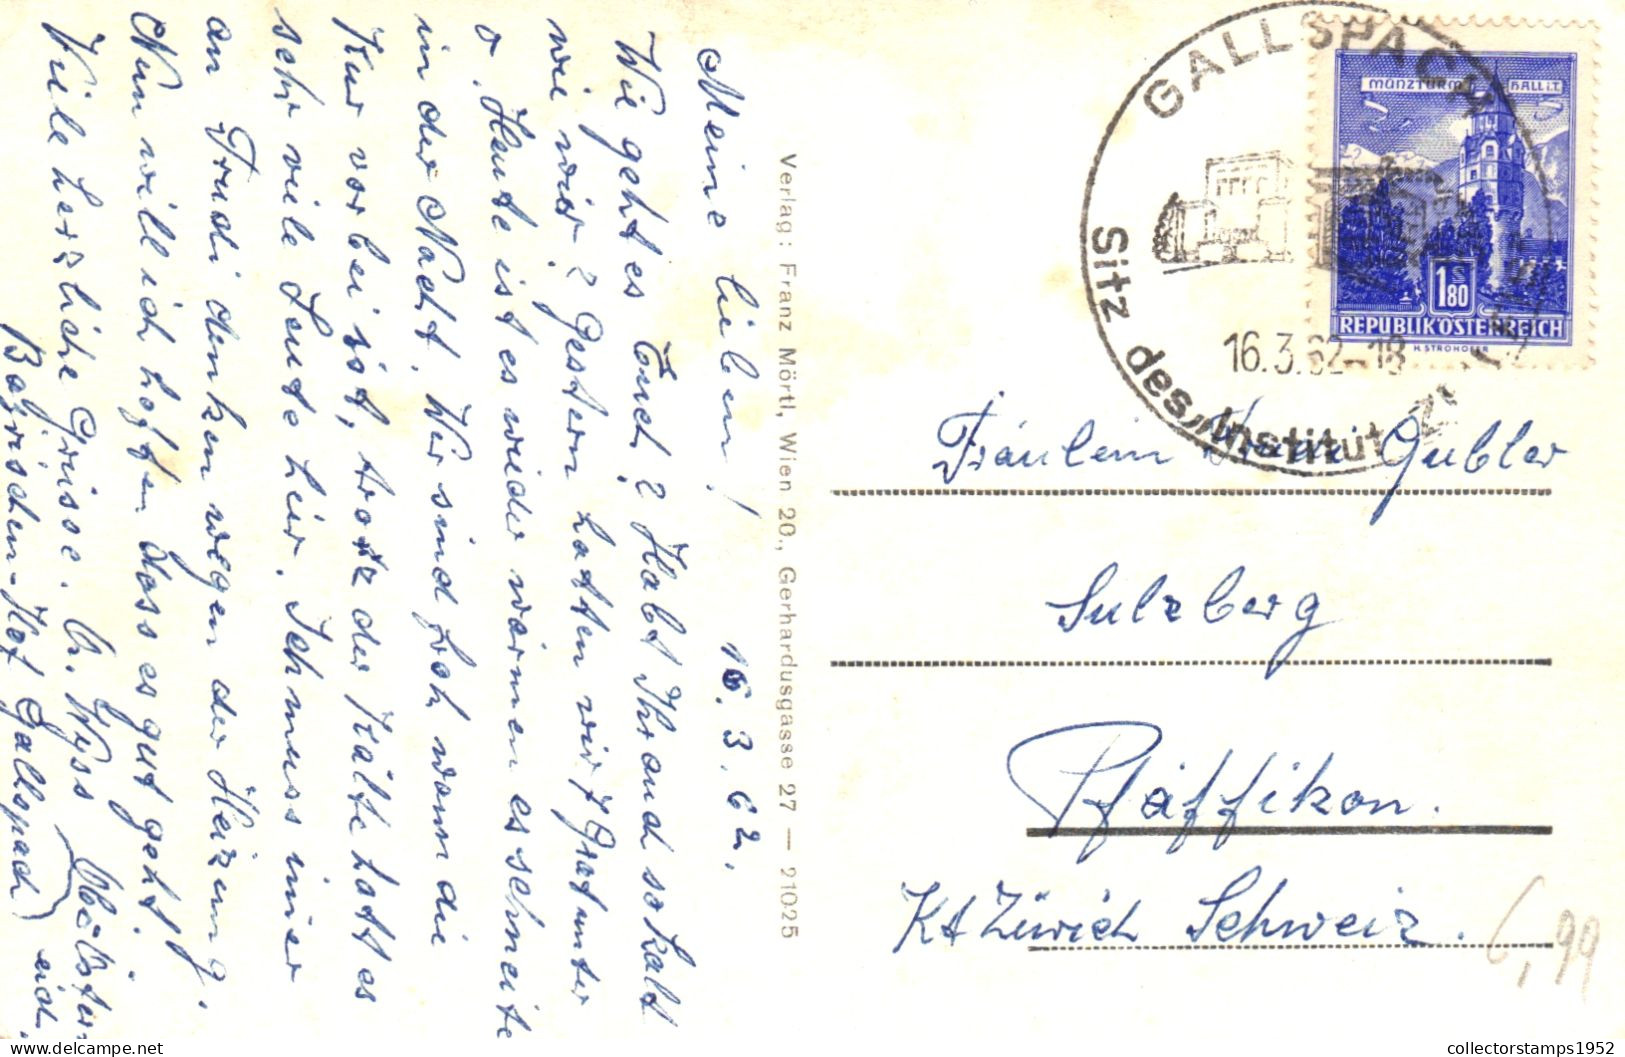 Meine lieben! 16.3.62.
Wie geht es Euch? Habt Ihr auch so kalt
wie wir? Gestern hatten wir 7 Grat unter
o. Heute ist es wieder wärmer es schneite
in der Nacht. Wir sind froh wann die
Kur vorbei ist, trotz der Kälte hat es
sehr viele Leute hier. Ich muss immer
an Trudi denken wegen der Heizung.
Nun will ich hoffen dass es gut geht
Viele herzliche Grüsse. A. Wyss
Bayrischen-Hof Gallspach
Verlag: Franz Mörtl, Wien 20., Gerhardusgasse 27 — 21025
GALLSPACH
Sitz des Institut
16.3.62-18
MÜNZTURM HALL i.T.
1.80 S
REPUBLIK ÖSTERREICH
H. STROHOFER
Fräulein Gubler
Sulzberg
Pfäffikon.
Kt Zürich Schweiz.
6,99
delcampe.net
collectorstamps1952